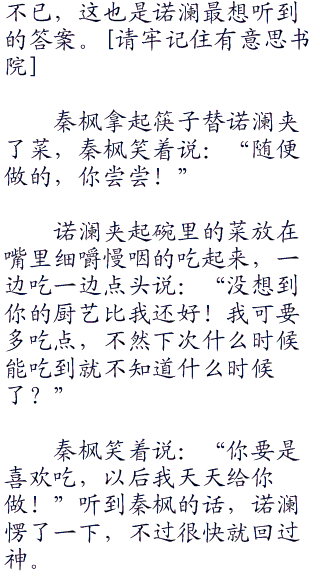 不已，这也是诺澜最想听到
的答案。[请牢记住有意思书
院]
秦枫拿起筷子替诺澜夹
了菜，秦枫笑着说：“随便
做的，你尝尝！”
诺澜夹起碗里的菜放在
嘴里细嚼慢咽的吃起来，一
边吃一边点头说：“没想到
你的厨艺比我还好！我可要
多吃点，不然下次什么时候
能吃到就不知道什么时候
了？”
秦枫笑着说：“你要是
喜欢吃，以后我天天给你
做！”听到秦枫的话，诺澜
愣了一下，不过很快就回过
神。